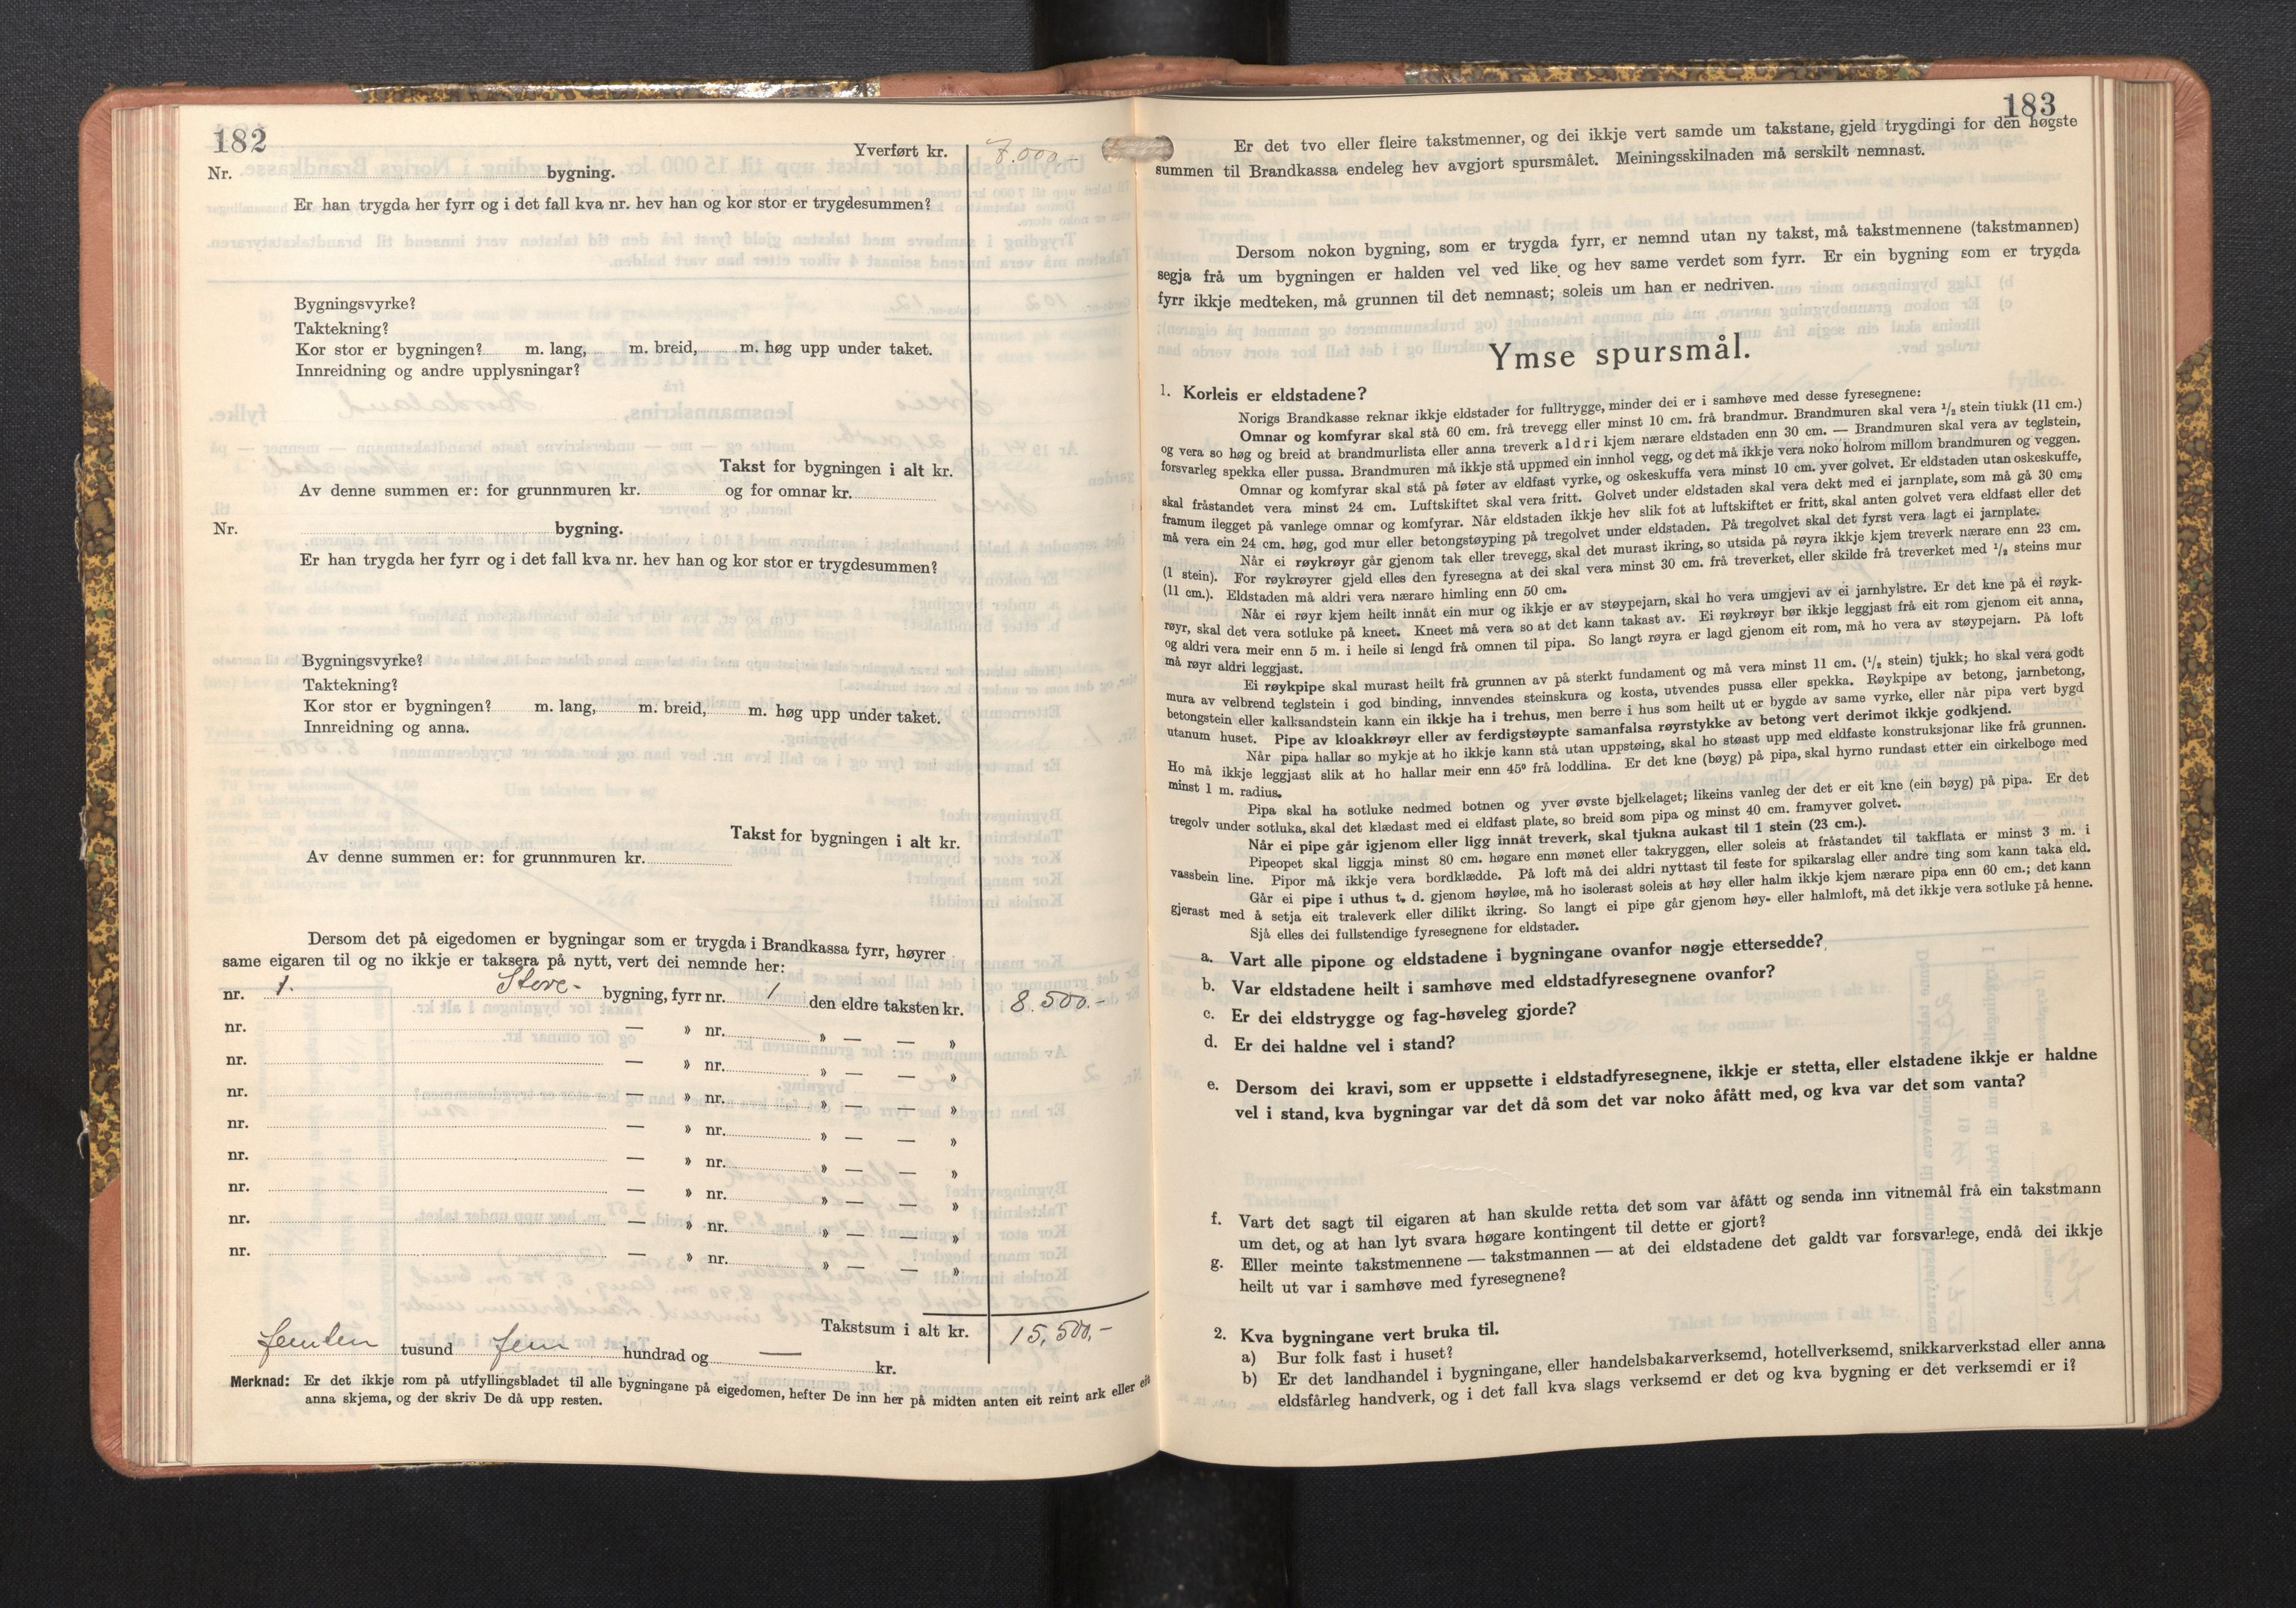 182
Yverført kr. 7.000,-
Nr. bygning.
Er han trygda her fyrr og i det fall kva nr. hev han og kor stor er trygdesummen?
Bygningsvyrke?
Taktekning?
Kor stor er bygningen? m. lang, m. breid, m. høg upp under taket.
Innreidning og andre upplysningar?
Takst for bygningen i alt kr.
Av denne summen er: for grunnmuren kr. og for omnar kr.
Nr. bygning.
Er han trygda her fyrr og i det fall kva nr. hev han og kor stor er trygdesummen?
Bygningsvyrke?
Taktekning?
Kor stor er bygningen? m. lang, m. breid, m. høg upp under taket.
Innreidning og anna.
Takst for bygningen i alt kr.
Av denne summen er: for grunnmuren kr.
Dersom det på eigedomen er bygningar som er trygda i Brandkassa fyrr, høyrer
same eigaren til og no ikkje er taksera på nytt, vert dei nemnde her:
nr. 1. Stove- bygning, fyrr nr. 1 den eldre taksten kr. 8.500.-
nr. — » nr. » — — »
nr. — » nr. » — — »
nr. — » nr. » — — »
nr. — » nr. » — — »
nr. — » nr. » — — »
nr. — » nr. » — — »
nr. — » nr. » — — »
nr. — » nr. » — — »
Takstsum i alt kr. 15,500,-
femten tusund fem hundrad og — kr.
Merknad: Er det ikkje rom på utfyllingsbladet til alle bygningane på eigedomen, hefter De inn her på midten anten eit reint ark eller eit
anna skjema, og der skriv De då upp resten.
183
Er det tvo eller fleire takstmenner, og dei ikkje vert samde um takstane, gjeld trygdingi for den høgste
summen til Brandkassa endeleg hev avgjort spursmålet. Meiningsskilnaden må serskilt nemnast.
Dersom nokon bygning, som er trygda fyrr, er nemnd utan ny takst, må takstmennene (takstmannen)
segja frå um bygningen er halden vel ved like og hev same verdet som fyrr. Er ein bygning som er trygda
fyrr ikkje medteken, må grunnen til det nemnast; soleis um han er nedriven.
Ymse spursmål.
1. Korleis er eldstadene?
Norigs Brandkasse reknar ikkje eldstader for fulltrygge, minder dei er i samhøve med desse fyresegnene:
Omnar og komfyrar skal stå 60 cm. frå trevegg eller minst 10 cm. frå brandmur. Brandmuren skal vera ½ stein tiukk (11 cm.)
og vera so høg og breid at brandmurlista eller anna treverk aldri kjem nærare eldstaden enn 30 cm. — Brandmuren skal vera av teglstein,
forsvarleg spekka eller pussa. Brandmuren må ikkje stå uppmed ein innhol vegg, og det må ikkje vera noko holrom millom brandmuren og veggen.
Omnar og komfyrar skal stå på føter av eldfast vyrke, og oskeskuffa vera minst 10 cm. yver golvet. Er eldstaden utan oskeskuffe,
skal fråstandet vera minst 24 cm. Luftskiftet skal vera fritt. Golvet under eldstaden skal vera dekt med ei jarnplate, som må gå 30 cm.
framum ilegget på vanlege omnar og komfyrar. Når eldstaden ikkje hev slik fot at luftskiftet er fritt, skal anten golvet vera eldfast eller det
må vera ein 24 cm. høg, god mur eller betongstøyping på tregolvet under eldstaden. På tregolvet skal det fyrst vera lagt ei jarnplate.
Når ei røykrøyr går gjenom tak eller trevegg, skal det murast ikring, so utsida på røyra ikkje kjem treverk nærare enn 23 cm.
(1 stein). For røykrøyrer gjeld elles den fyresegna at dei skal vera minst 30 cm. frå treverket, eller skilde frå treverket med ½ steins mur
(11 cm.). Eldstaden må aldri vera nærare himling enn 50 cm.
Når ei røyr kjem heilt innåt ein mur og ikkje er av støypejarn, skal ho vera umgjevi av ei jarnhylstre. Er det kne på ei røyk-
røyr, skal det vera sotluke på kneet. Kneet må vera so at det kann takast av. Ei røykrøyr bør ikkje leggjast frå eit rom gjenom eit anna,
og aldri vera meir enn 5 m. i heile si lengd frå omnen til pipa. So langt røyra er lagd gjenom eit rom, må ho vera av støypejarn. På loft
må røyr aldri leggjast.
Ei røykpipe skal murast heilt frå grunnen av på sterkt fundament og må vera minst 11 cm. (½ stein) tjukk; ho skal vera godt
mura av velbrend teglstein i god binding, innvendes steinskura og kosta, utvendes pussa eller spekka. Røykpipe av betong, jarnbetong,
betongstein eller kalksandstein kann ein ikkje ha i trehus, men berre i hus som heilt ut er bygde av same vyrke, eller når pipa vert bygd
utanum huset. Pipe av kloakkrøyr eller av ferdigstøypte samanfalsa røyrstykke av betong vert derimot ikkje godkjend.
Når pipa hallar so mykje at ho ikkje kann stå utan uppstøing, skal ho støast upp med eldfaste konstruksjonar like frå grunnen.
Ho må ikkje leggjast slik at ho hallar meir enn 45° frå loddlina. Er det kne (bøyg) på pipa, skal hyrno rundast etter ein cirkelboge med
minst 1 m. radius.
Pipa skal ha sotluke nedmed botnen og yver øvste bjelkelaget; likeins vanleg der det er eit kne (ein bøyg) på pipa. Er det
tregolv under sotluka, skal det klædast med ei eldfast plate, so breid som pipa og minst 40 cm. framyver golvet.
Når ei pipe går igjenom eller ligg innåt treverk, skal tjukna aukast til 1 stein (23 cm.).
Pipeopet skal liggja minst 80 cm. høgare enn mønet eller takryggen, eller soleis at fråstandet til takflata er minst 3 m. i
vassbein line. Pipor må ikkje vera bordklædde. På loft må dei aldri nyttast til feste for spikarslag eller andre ting som kann taka eld.
Går ei pipe i uthus t. d. gjenom høyløe, må ho isolerast soleis at høy eller halm ikkje kjem nærare pipa enn 60 cm.; det kann
gjerast med å setja eit traleverk eller dilikt ikring. So langt ei pipe går gjenom høy- eller halmloft, må det ikkje vera sotluke på henne.
Sjå elles dei fullstendige fyresegnene for eldstader.
a. Vart alle pipone og eldstadene i bygningane ovanfor nøgje ettersedde?
b. Var eldstadene heilt i samhøve med eldstadfyresegnene ovanfor?
c. Er dei eldstrygge og fag-høveleg gjorde?
d. Er dei haldne vel i stand?
e. Dersom dei kravi, som er uppsette i eldstadfyresegnene, ikkje er stetta, eller elstadene ikkje er haldne
vel i stand, kva bygningar var det då som det var noko åfått med, og kva var det som vanta?
f. Vart det sagt til eigaren at han skulde retta det som var åfått og senda inn vitnemål frå ein takstmann
um det, og at han lyt svara høgare kontingent til dette er gjort?
g. Eller meinte takstmennene — takstmannen — at dei eldstadene det galdt var forsvarlege, endå dei ikkje
heilt ut var i samhøve med fyresegnene?
2. Kva bygningane vert bruka til.
a) Bur folk fast i huset?
b) Er det landhandel i bygningane, eller handelsbakarverksemd, hotellverksemd, snikkarverkstad eller anna
eldsfårleg handverk, og i det fall kva slags verksemd er det og kva bygning er det verksemdi er i?